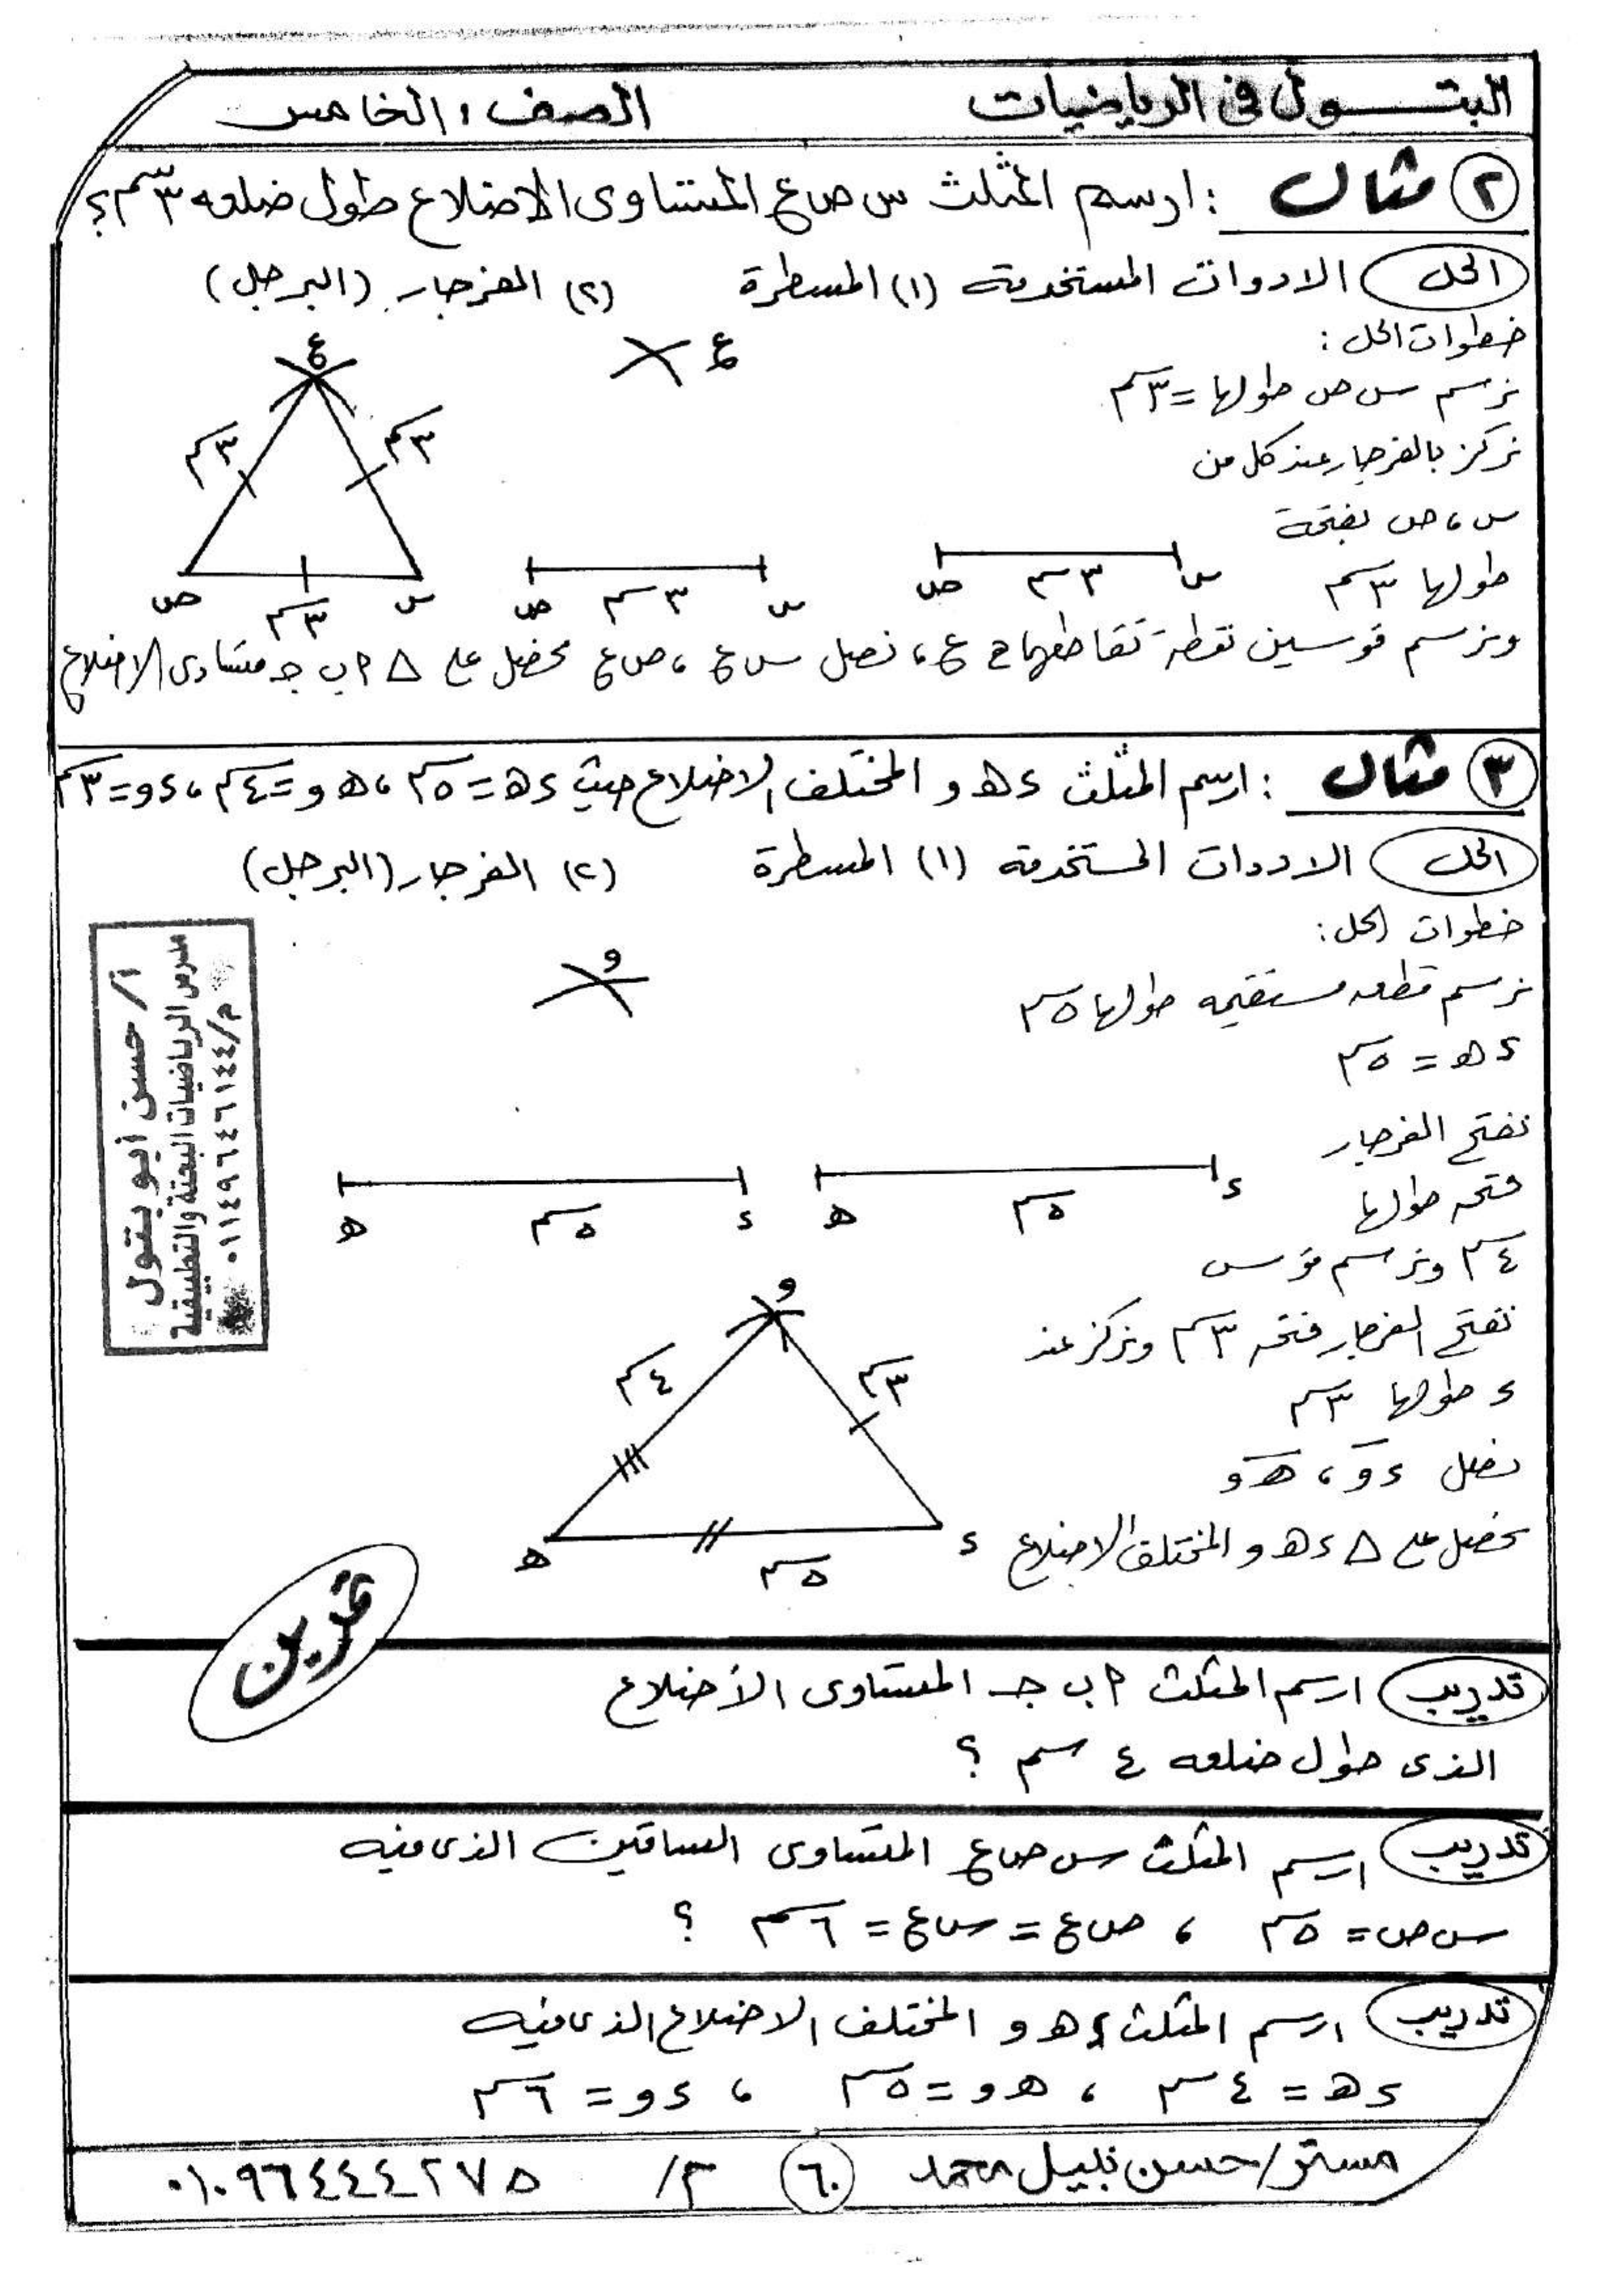 البتــول فى الرياضيات
الصف الخامس
(٢) مثال : ارسم المثلث س ص ع المتساوى الاضلاع طول ضلعه ٣سم؟
الحل الادوات المستخدمة (١) المسطرة (٢) الفرجار (البرجل)
خطوات الحل :
نرسم س ص طولها = ٣سم
نركز بالفرجار عند كل من
س ، ص بفتحة
طولها ٣سم
ع
ع
٣سم
٣سم
س ٣سم ص
س ٣سم ص
س ٣سم ص
ونرسم قوسين نقطة تقاطعهما ع ، نصل س ع ، ص ع نحصل على △ ٢ ب جـ متساوى الاضلاع
(٣) مثال : ارسم المثلث ء ه و المختلف الاضلاع حيث ء ه = ٥سم ، ه و = ٤سم ، ء و = ٣سم
الحل الادوات المستخدمة (١) المسطرة (٢) الفرجار (البرجل)
خطوات الحل :
نرسم قطعه مستقيمه طولها ٥سم
ء ه = ٥سم
نفتح الفرجار
فتحه طولها
٤سم ونرسم قوس
نفتح الفرجار فتحه ٣سم ونركز عند
ء طولها ٣سم
نصل ء و ، ه و
نحصل على △ ء ه و المختلف الاضلاع
و
ء ٥سم ه
ء ٥سم ه
و
٣سم
٤سم
ء ٥سم ه
أ/ حسن أبو بتول
مدرس الرياضيات البحتة والتطبيقية
م/ ٠١١٤٩٦٤٦١٤٤
تمرين
تدريب ارسم المثلث ٢ ب جـ المتساوى الأضلاع
الذى طول ضلعه ٤ سم ؟
تدريب ارسم المثلث س ص ع المتساوى الساقين الذى فيه
س ص = ٥سم ، ص ع = س ع = ٦سم ؟
تدريب ارسم المثلث ء ه و المختلف الاضلاع الذى فيه
ء ه = ٤سم ، ه و = ٥سم ، ء و = ٦سم
مستر / حسن نبيل محمد (٦٠) م/ ٠١٠٩٦٤٤٤٢٧٥